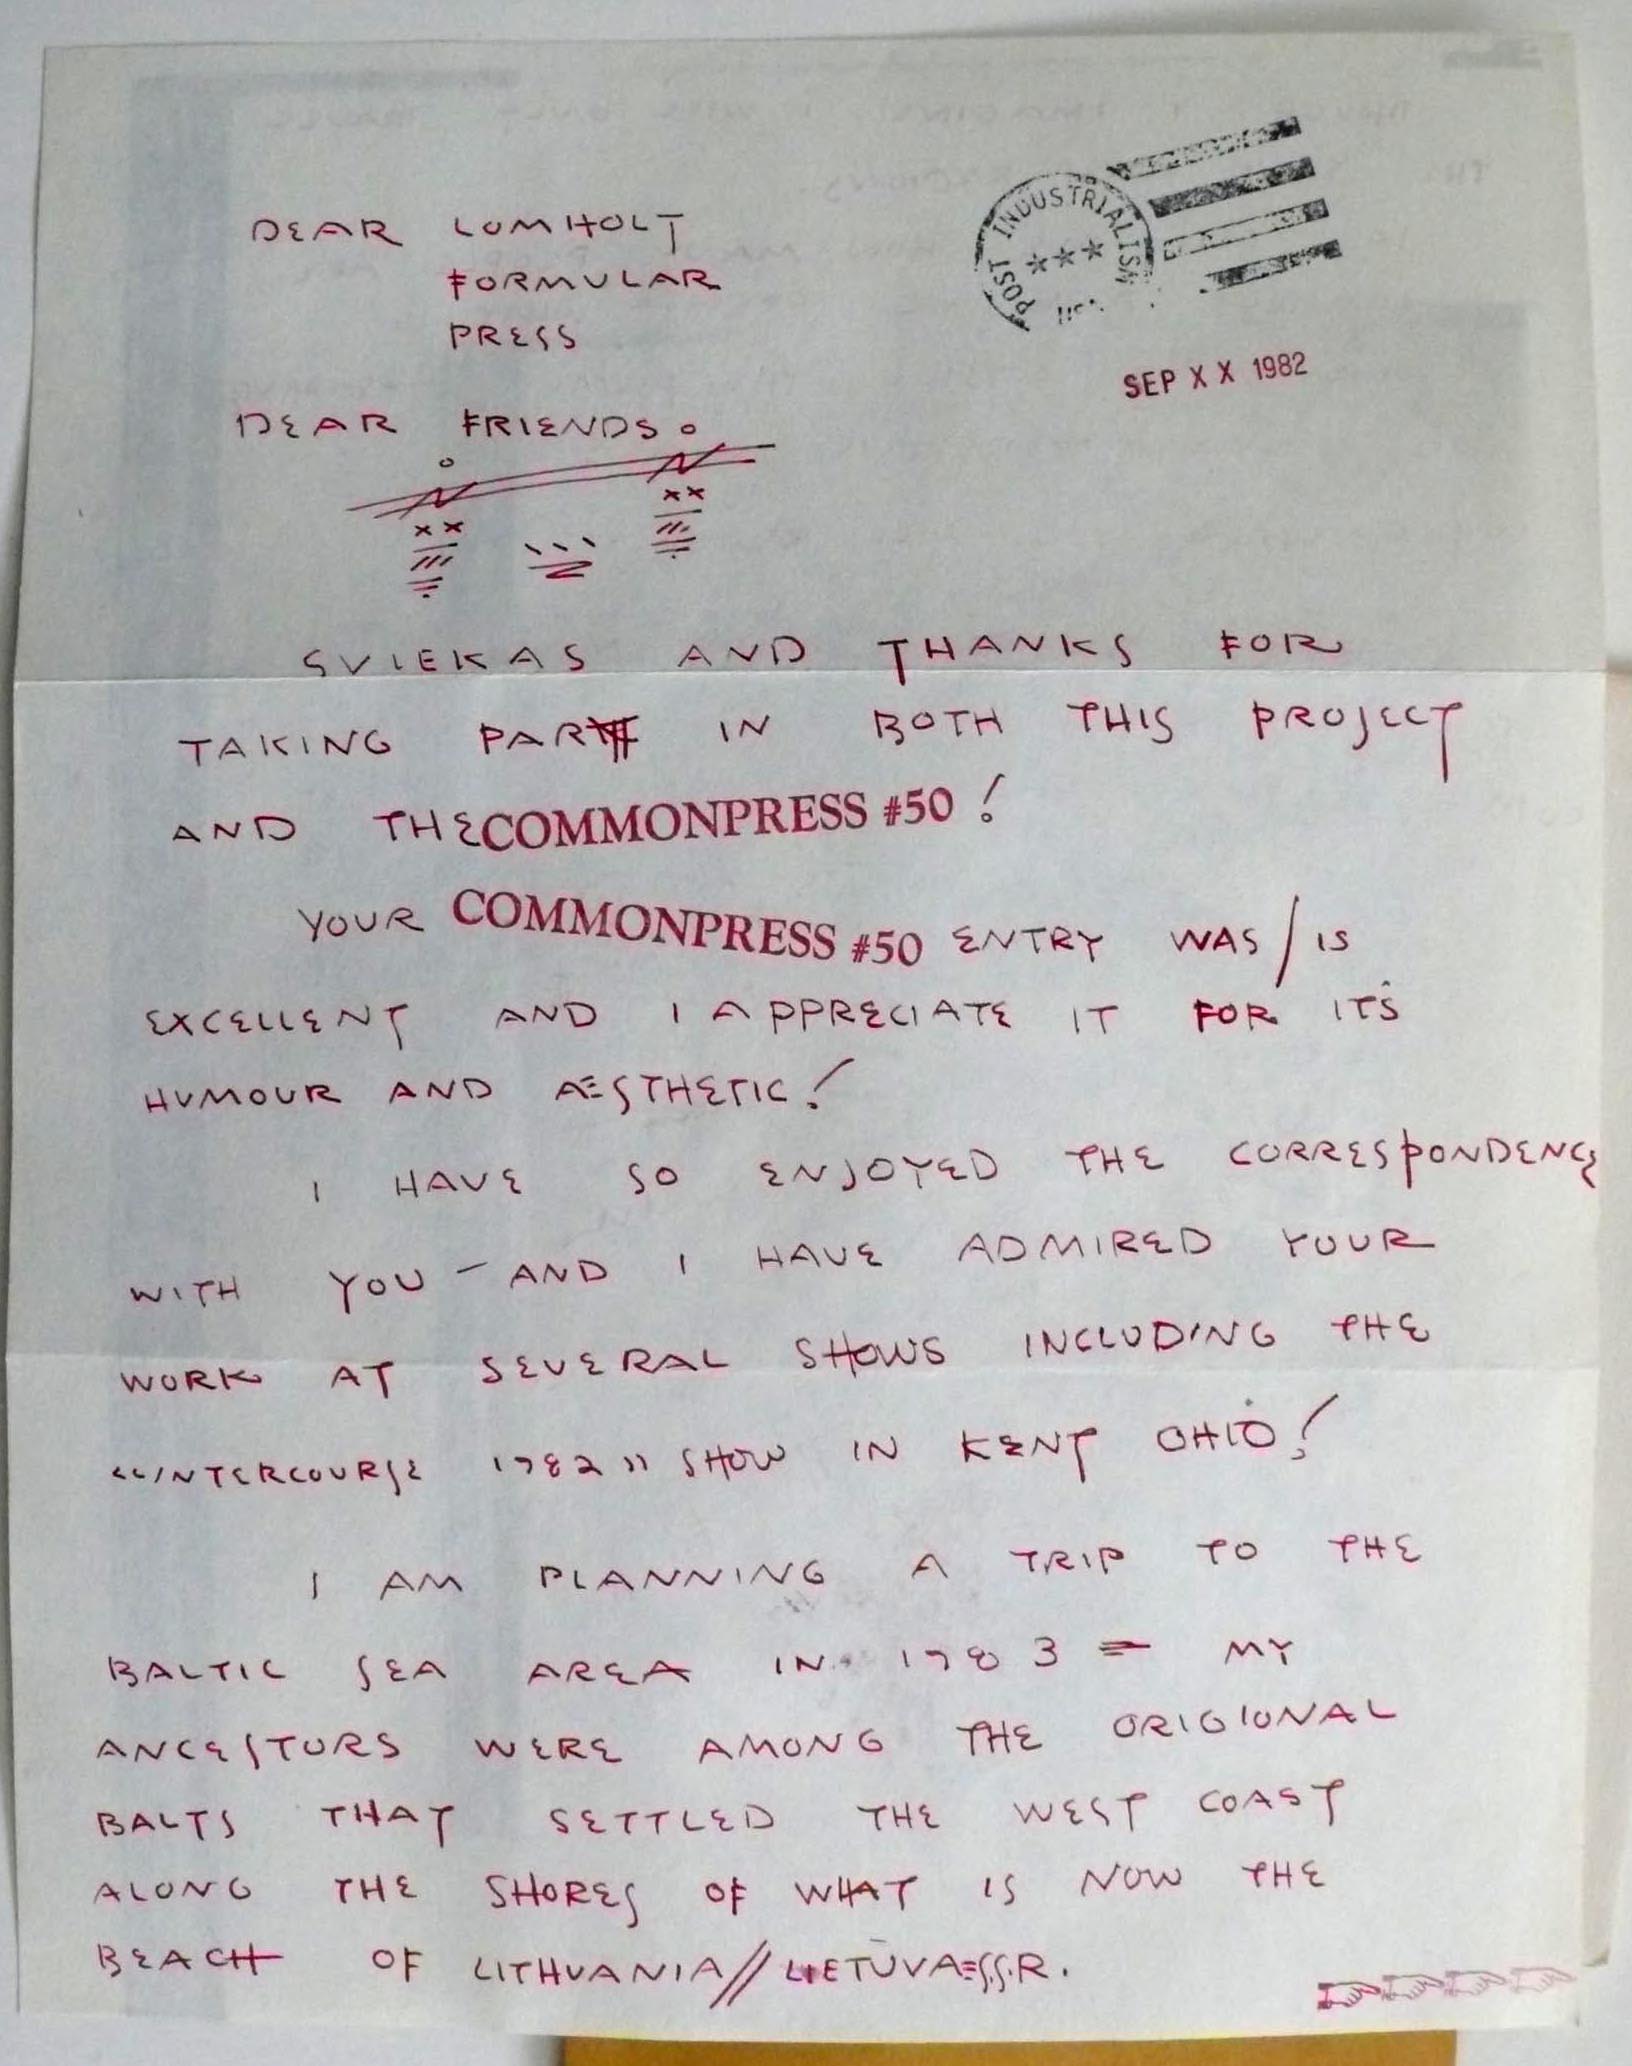 POST INDUSTRIALISM
SEP X X 1982
DEAR LOMHOLT
FORMULAR
PRESS
DEAR FRIENDS.
SVIEKAS AND THANKS FOR
TAKING PART IN BOTH THIS PROJECT
AND THE COMMONPRESS #50 !
YOUR COMMONPRESS #50 ENTRY WAS / IS
EXCELLENT AND I APPRECIATE IT FOR ITS
HUMOUR AND AESTHETIC!
I HAVE SO ENJOYED THE CORRESPONDENCE
WITH YOU – AND I HAVE ADMIRED YOUR
WORK AT SEVERAL SHOWS INCLUDING THE
"INTERCOURSE 1982" SHOW IN KENT OHIO!
I AM PLANNING A TRIP TO THE
BALTIC SEA AREA IN 1983 = MY
ANCESTORS WERE AMONG THE ORIGIONAL
BALTS THAT SETTLED THE WEST COAST
ALONG THE SHORES OF WHAT IS NOW THE
BEACH OF LITHUANIA // LIETŪVA=S.S.R.